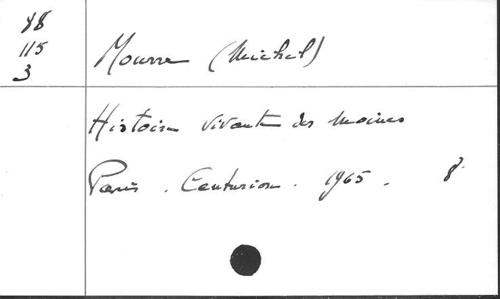 88
115
3
Mourre (Michel)
Histoire vivante des Moines
Paris . Centurion . 1965 . 8.